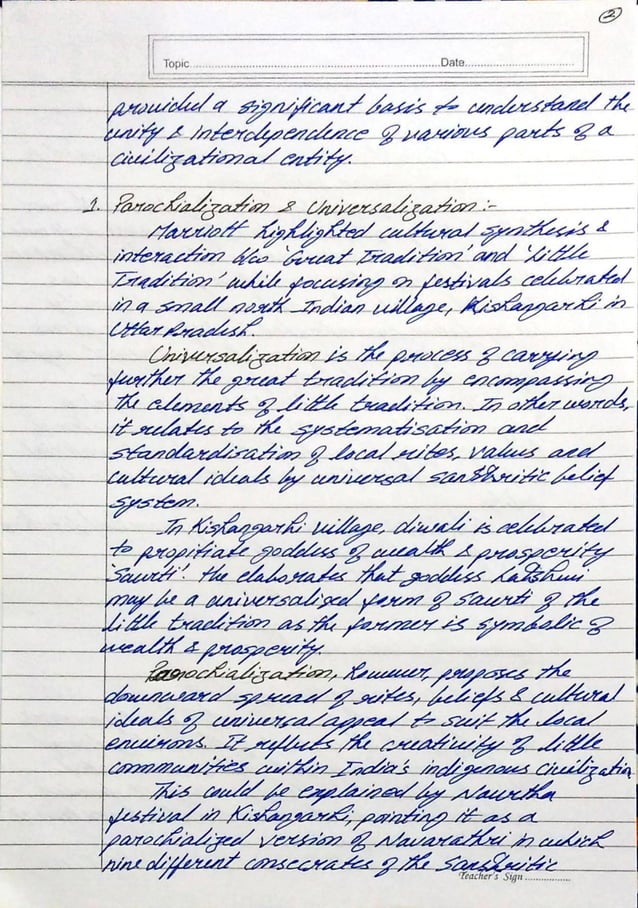 2
Topic
Date
provided a significant basis to understand the
unity & interdependence of various parts of a
civilizational entity.
1. Parochialization & Universalization :-
Marriott highlighted cultural synthesis &
interaction b/w 'Great Tradition' and 'Little
Tradition' while focusing on festivals celebrated
in a small north Indian village, Kishangarhi in
Uttar Pradesh.
Universalization is the process of carrying
further the great tradition by encompassing
the elements of little tradition. In other words,
it relates to the systematisation and
standardization of local rites, values and
cultural ideals by universal sanskritic belief
system.
In Kishangarhi village, diwali is celebrated
to propitiate goddess of wealth & prosperity
'Saurti'. He elaborates that goddess Lakshmi
may be a universalized form of Saurti of the
little tradition as the former is symbolic of
wealth & prosperity.
Parochialization, however, proposes the
downward spread of rites, beliefs & cultural
ideals of universal appeal to suit the local
environs. It reflects the creativity of little
communities within India's indigenous civilization
This could be explained by Naurtha
festival in Kishangarhi, pointing it as a
parochialized version of Navarathri in which
nine different consecrates of the Sanskritic
Teacher's Sign